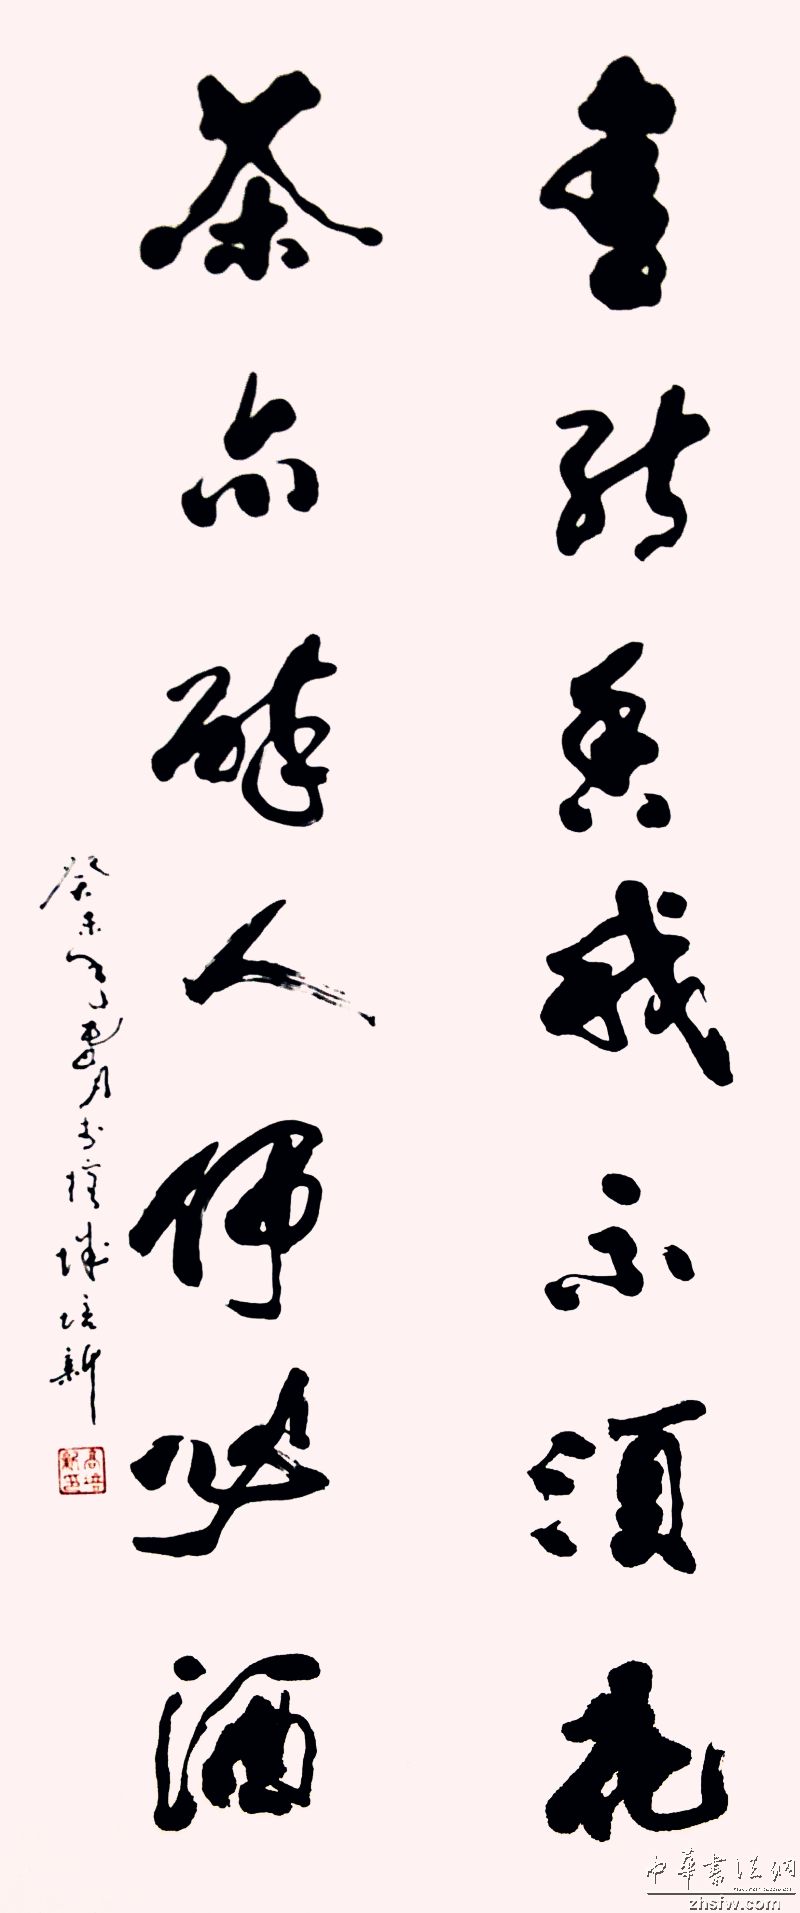 書能香我不須花
茶亦醉人何必酒
癸未年夏月书榕城培新
高培新印
中華書法網
zhsfw.com